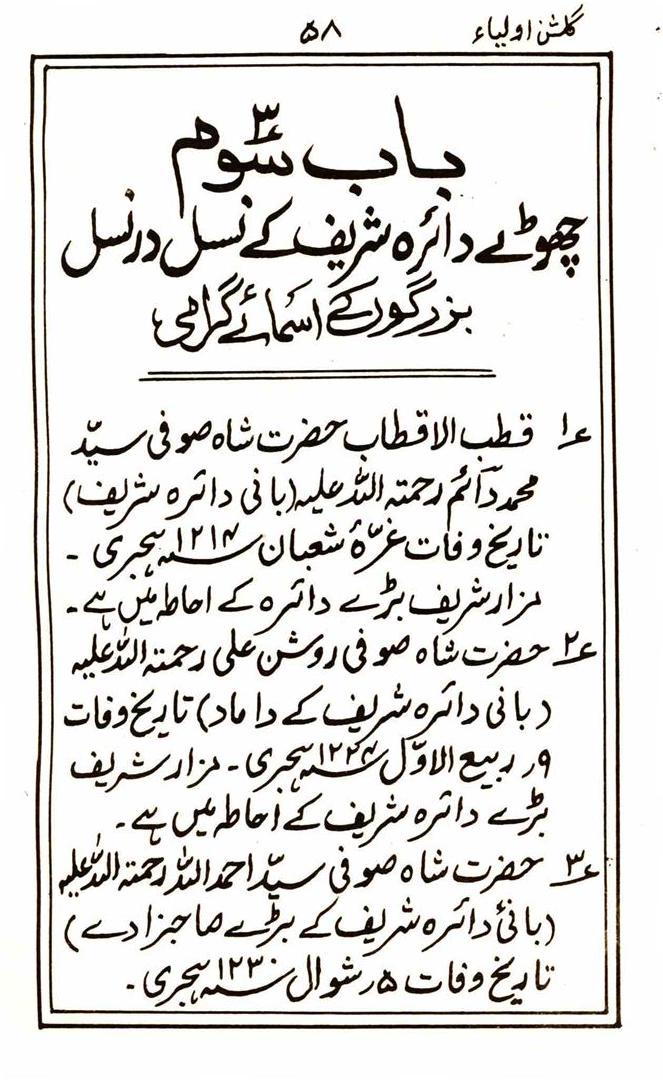 گلشن اولیاء ۵۸
باب سوّم ۳
چھوٹے دائرہ شریف کے نسل در نسل
بزرگوں کے اسمائے گرامی
۱؎ قطب الاقطاب حضرت شاہ صوفی سیّد
محمد دائم رحمتہ اللہ علیہ (بانی دائرہ شریف)
تاریخ وفات غرّۂ شعبان ۱۲۱۴؁ ہجری ۔
مزار شریف بڑے دائرہ کے احاطہ میں ہے۔
۲؎ حضرت شاہ صوفی روشن علی رحمتہ اللہ علیہ
(بانی دائرہ شریف کے داماد) تاریخ وفات
۹ر ربیع الاوّل ۱۲۲۴؁ ہجری ۔ مزار شریف
بڑے دائرہ شریف کے احاطہ میں ہے ۔
۳؎ حضرت شاہ صوفی سیّد احمد اللہ رحمتہ اللہ علیہ
(بانئ دائرہ شریف کے بڑے صاحبزادے)
تاریخ وفات ۵ر شوال ۱۲۳۰؁ ہجری ۔